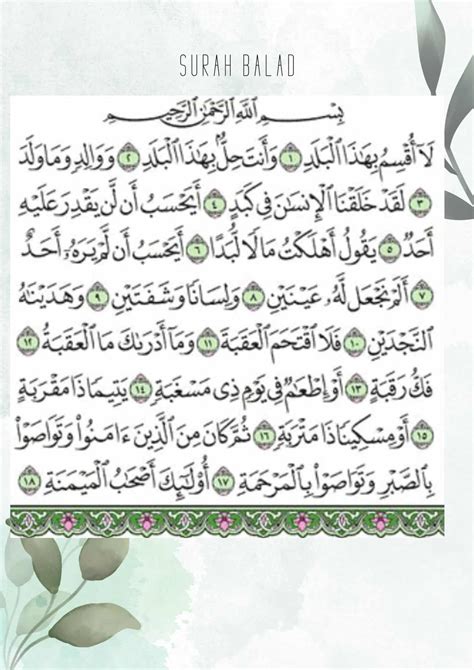 SURAH BALAD
بِسْمِ ٱللَّهِ ٱلرَّحْمَٰنِ ٱلرَّحِيمِ
لَآ أُقْسِمُ بِهَٰذَا ٱلْبَلَدِ ١ وَأَنتَ حِلٌّۢ بِهَٰذَا ٱلْبَلَدِ ٢ وَوَالِدٍ وَمَا وَلَدَ
٣ لَقَدْ خَلَقْنَا ٱلْإِنسَٰنَ فِى كَبَدٍ ٤ أَيَحْسَبُ أَن لَّن يَقْدِرَ عَلَيْهِ
أَحَدٌ ٥ يَقُولُ أَهْلَكْتُ مَالًا لُّبَدًا ٦ أَيَحْسَبُ أَن لَّمْ يَرَهُۥٓ أَحَدٌ
٧ أَلَمْ نَجْعَل لَّهُۥ عَيْنَيْنِ ٨ وَلِسَانًا وَشَفَتَيْنِ ٩ وَهَدَيْنَٰهُ
ٱلنَّجْدَيْنِ ١٠ فَلَا ٱقْتَحَمَ ٱلْعَقَبَةَ ١١ وَمَآ أَدْرَىٰكَ مَا ٱلْعَقَبَةُ ١٢
فَكُّ رَقَبَةٍ ١٣ أَوْ إِطْعَٰمٌ فِى يَوْمٍ ذِى مَسْغَبَةٍ ١٤ يَتِيمًا ذَا مَقْرَبَةٍ
١٥ أَوْ مِسْكِينًا ذَا مَتْرَبَةٍ ١٦ ثُمَّ كَانَ مِنَ ٱلَّذِينَ ءَامَنُوا۟ وَتَوَاصَوْا۟
بِٱلصَّبْرِ وَتَوَاصَوْا۟ بِٱلْمَرْحَمَةِ ١٧ أُو۟لَٰٓئِكَ أَصْحَٰبُ ٱلْمَيْمَنَةِ ١٨